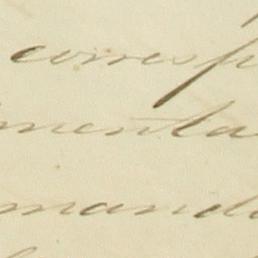 corresp
menta
mando